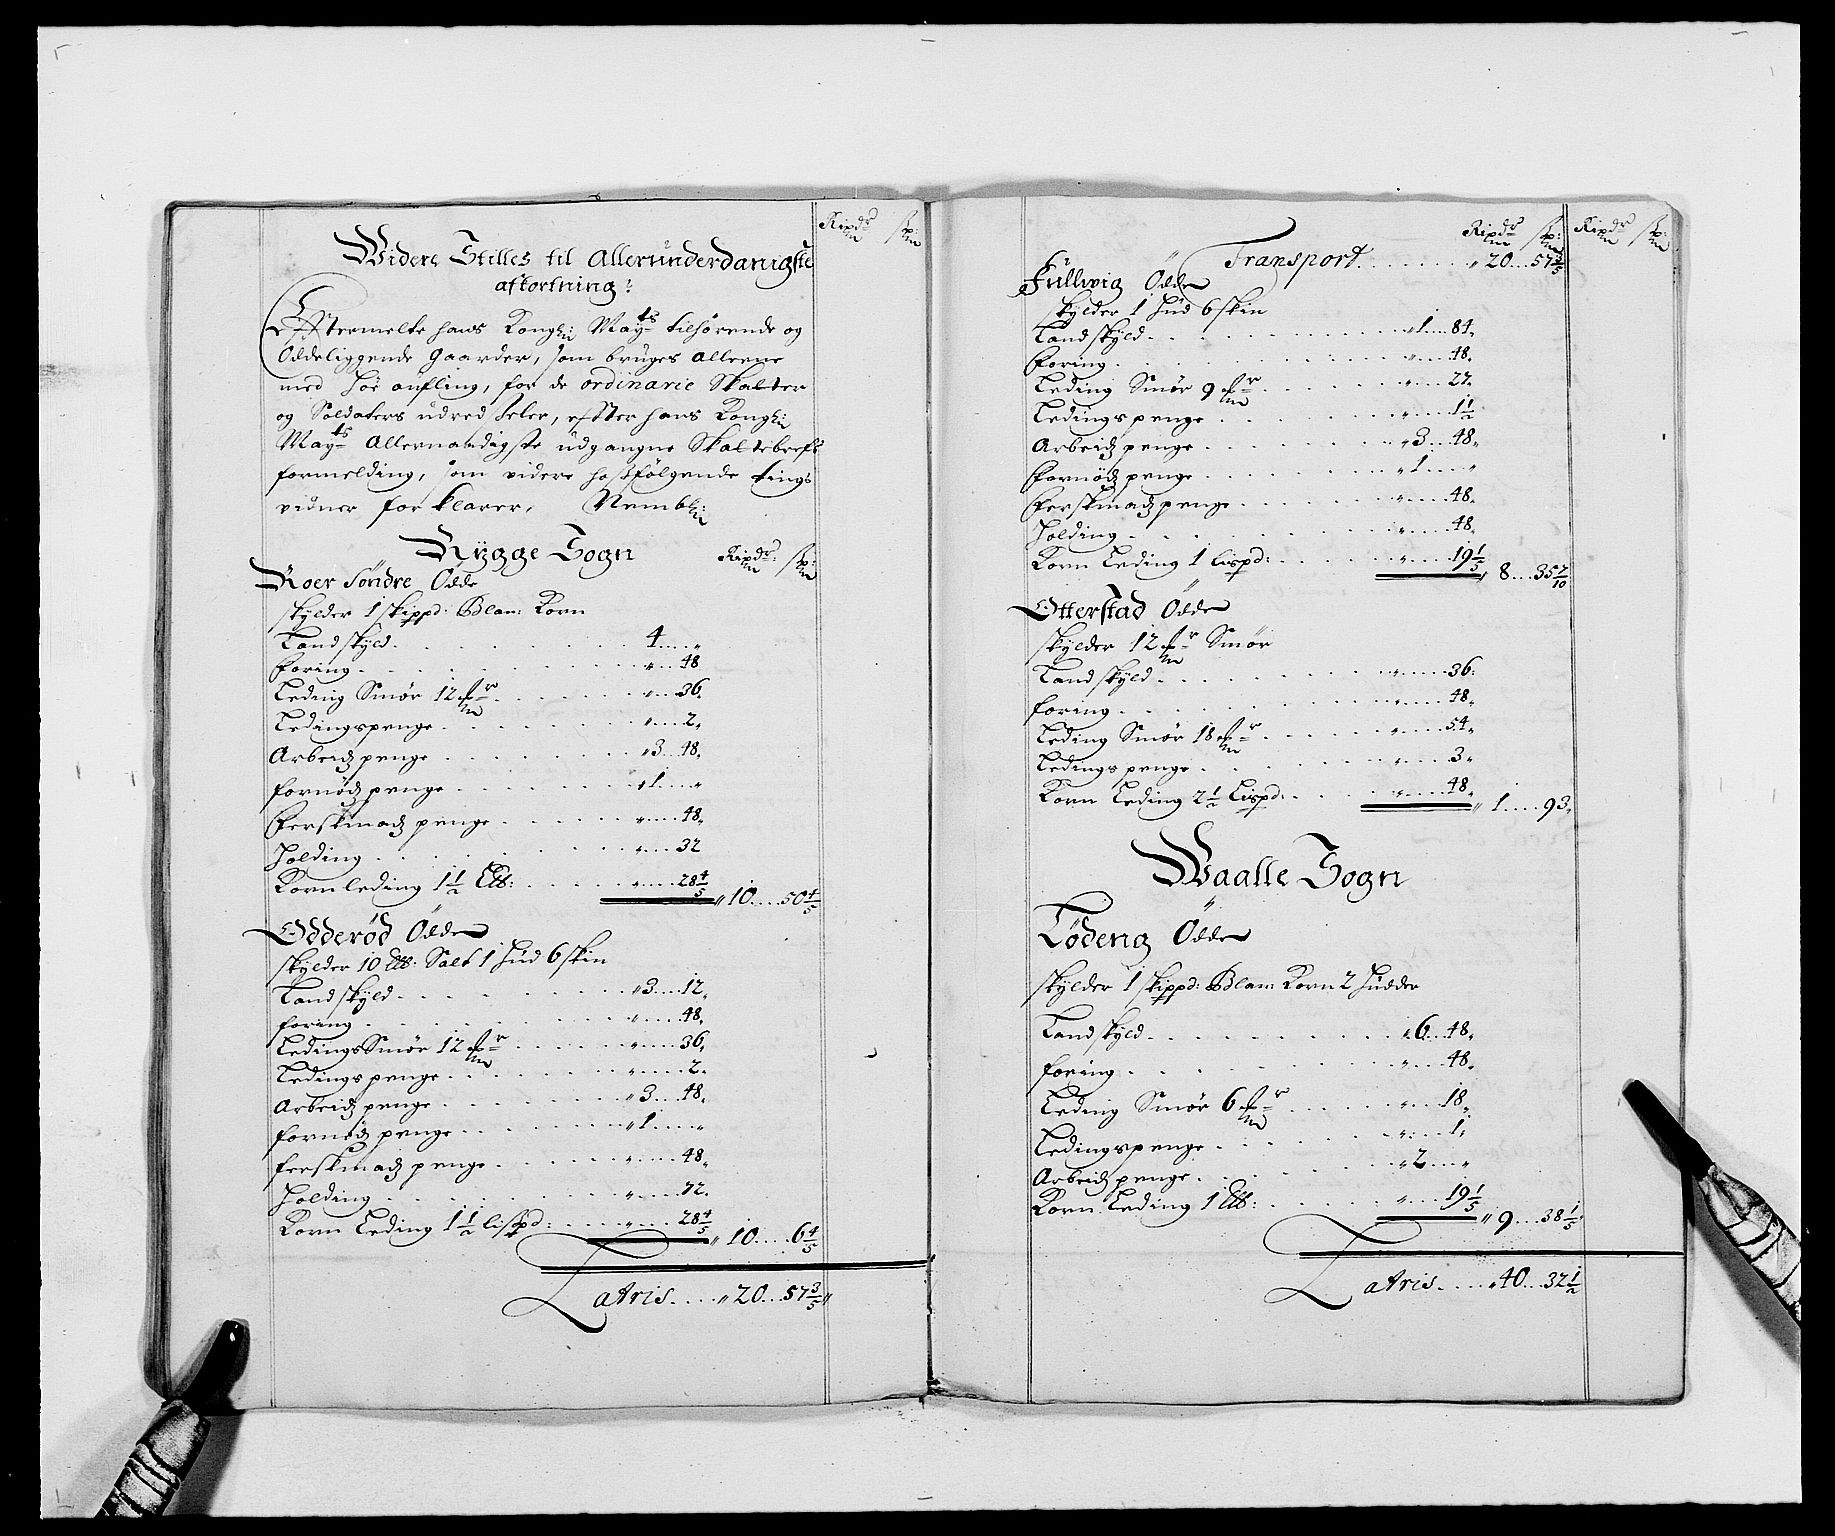 Ripdr sk:
Widere Stilles til Allerunderdanigste
afkortning:
Effstermelte hans Kongl: Mayts tilhørende og
Ödeliggende Gaarder, som bruges alleene
med höe aufling, for de ordinarie Skatter
og Soldaters udredseler, effter hans Kongl:
Mayts Allernaadigste udgangne Skattebrefs
formelding, som videre hosfølgende tings
vidner forklarer, Nembl:
Rygge Sogn Ripdr: sk:
Roer Söndre Öde
skylder 1 skippd: Blan: Korn
Landskyld . . . 4 .... "
Foring . . . " ... 48
Leding Smör 12 mr . . . " ... 36
Ledingspenge . . . " .... 2 "
Arbeidzpenge . . . " 3 ... 48 "
fornödzpenge . . . " 1 .... "
Ferskmadz penge . . . " .... 48 "
Holding . . . " .... 32
Kornleding 1 1/2 Ltb: . . . " .... 28 4/5 " 10 .... 50 4/5
Odderöd Öde
skylder 10 Ltb: Salt 1 Hud 6 skin
Landskyld . . . " 3 .... 12 "
foring . . . " .... 48 "
LedingsSmör 12 mr . . . " .... 36 "
Ledingspenge . . . " .... 2 "
Arbeidzpenge . . . " 3 .... 48 "
fornödzpenge . . . " 1 .... "
ferskmadzpenge . . . " .... 48 "
Holding . . . " .... 72 "
Korn Leding 1 1/2 lispd: . . . " .... 28 4/5 " 10 .... 6 4/5
Latris .... " 20 ... 57 3/5 "
Ripdr sk: Ripdr sk:
Transport . . . " 20 ... 57 3/5
Fullwig Öde
skylder 1 Hud 6 skin
Landskyld . . . " 1 .... 84 "
Foring . . . " .... 48 "
Leding Smör 9 mr . . . " .... 27 "
Ledingspenge . . . " .... 1 1/2
Arbeidzpenge . . . " 3 ... 48 "
Fornödzpenge . . . " 1 .... "
Ferskmadzpenge . . . " .... 48 "
Holding . . . " .... 48 "
Korn Leding 1 lispd: . . . " .... 19 1/5 " 8 ... 35 7/10
Otterstad Öde
skylder 12 mr Smör
Landskyld . . . " .... 36 :
foring . . . " .... 48 "
Leding Smör 18 mr . . . " .... 54 "
Ledingspenge . . . " .... 3 "
Korn Leding 2 1/2 Lispd: . . . " .... 48 " " 1 .... 93 "
Waalle Sogn
Lödeng Öde
skylder 1 skippd: Blan: Korn 2 Hudder
Landskyld . . . " 6 ... 48 "
foring . . . " .... 48 "
Leding Smör 6 mr . . . " .... 18 "
Ledingspenge . . . " .... 1 "
Arbeidzpenge . . . " 2 .... "
Korn Leding 1 Ltb: . . . " .... 19 1/5 " 9 ... 38 1/5 "
Latris .... " 40 ... 32 1/2